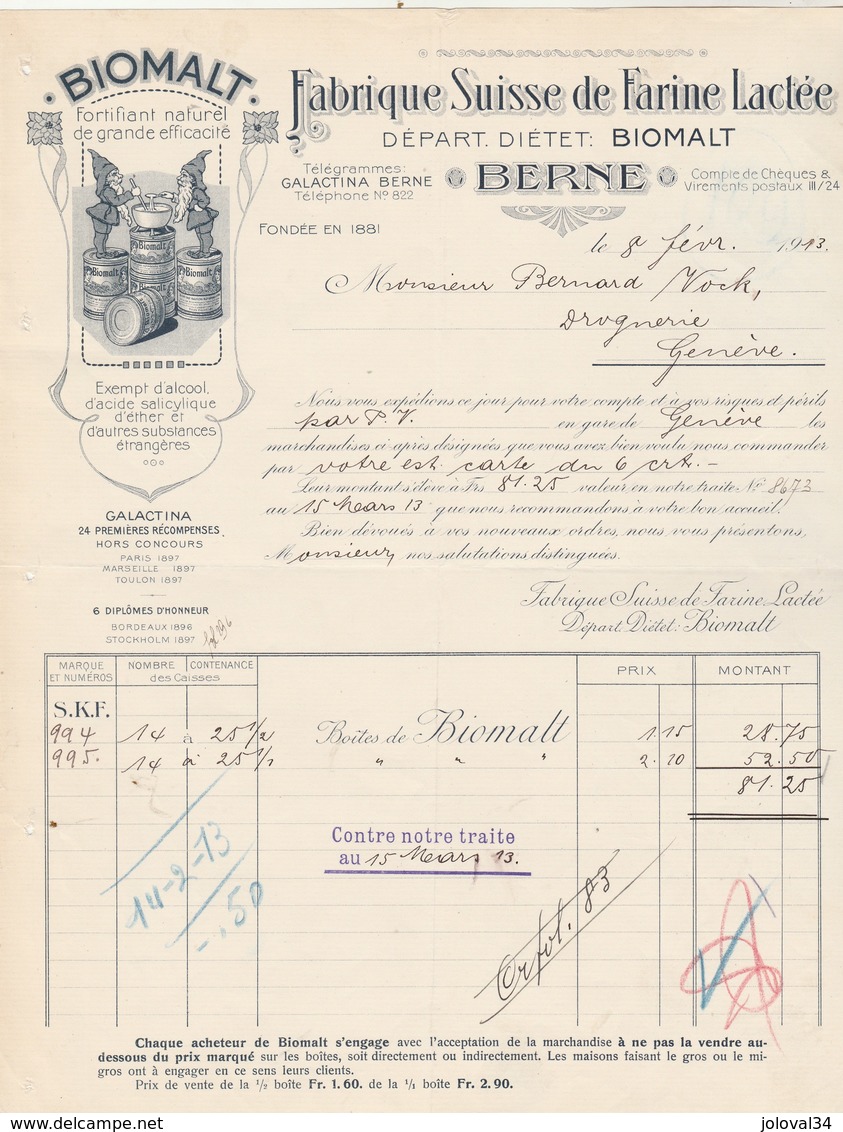 BIOMALT
Fortifiant naturel
de grande efficacité
Biomalt
Biomalt
Biomalt
Exempt d'alcool,
d'acide salicylique
d'éther et
d'autres substances
étrangères
GALACTINA
24 PREMIÈRES RÉCOMPENSES
HORS CONCOURS
PARIS 1897
MARSEILLE 1897
TOULON 1897
6 DIPLÔMES D'HONNEUR
BORDEAUX 1896
STOCKHOLM 1897
Fabrique Suisse de Farine Lactée
DÉPART. DIÉTET: BIOMALT
Télégrammes:
GALACTINA BERNE
Téléphone No 822
BERNE
Compte de Chèques &
Virements postaux III/24
FONDÉE EN 1881
le 8 févr. 1913.
Monsieur Bernard Vock,
Droguerie
Genève.
Nous vous expédions ce jour pour votre compte et à vos risques et périls
par P. V. en gare de Genève les
marchandises ci-après désignées que vous avez bien voulu nous commander
par votre est. carte du 6 crt.-
Leur montant s'élève à Frs 81.25 valeur en notre traite No 8673
au 15 Mars 13 que nous recommandons à votre bon accueil.
Bien dévoués à vos nouveaux ordres, nous vous présentons,
Monsieur, nos salutations distinguées.
Fabrique Suisse de Farine Lactée
Départ. Diétet: Biomalt
MARQUE ET NUMÉROS NOMBRE CONTENANCE des Caisses PRIX MONTANT
S.K.F.
994 14 à 25 1/2 Boîtes de Biomalt 1.15 28.75
995. 14 à 25 1/1 " " " 2.10 52.50
81.25
Contre notre traite
au 15 Mars 13.
14-2-13
-.50
83
Chaque acheteur de Biomalt s'engage avec l'acceptation de la marchandise à ne pas la vendre au-
dessous du prix marqué sur les boîtes, soit directement ou indirectement. Les maisons faisant le gros ou le mi-
gros ont à engager en ce sens leurs clients.
Prix de vente de la 1/2 boîte Fr. 1.60. de la 1/1 boîte Fr. 2.90.
joloval34